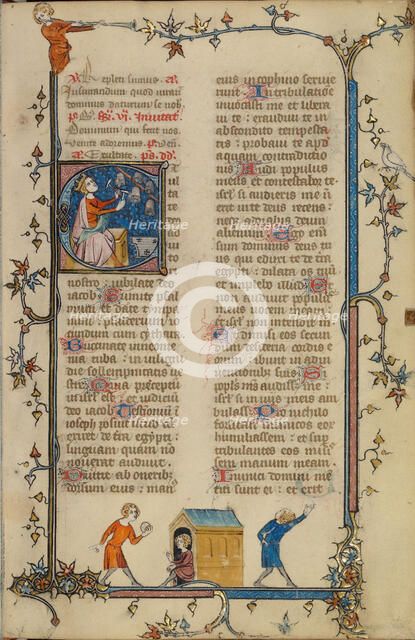 Repleti sumus.
Iusiurandum quod iurauit
dominus daturum se nob.
Inuitat.
Dominum qui fecit nos.
Venite adoremus. ps.
Exultate. ps. dd.
nostro iubilate deo
iacob. Sumite psal
mum et date tympa
num psalterium io
cundum cum cythara
Buccinate in neome
nia tuba in insigni
die sollempnitatis ue
stre. Quia preceptum
israel est et iudicium
deo iacob. Testimonium i
ioseph posuit illud cum
exiret de terra egypti
linguam quam non
nouerat audiuit.
Diuertit ab oneribus
dorsum eius man
eius in cophino seruie
runt. In tribulatione
inuocasti me et libera
ui te exaudiui te in
abscondito tempesta
tis probaui te apud
aquam contradictio
nis. Audi populus
meus et contestabor te
israel si audieris me non
erit in te deus recens
nec adorabis deum
alienum. Ego enim
sum dominus deus
tuus qui eduxi te de terra
egypti dilata os tuum
et implebo illud. Et
non audiuit populus
meus uocem meam et
israel non intendit mi
chi. Et dimisi
eos secundum
desideria cordis e
orum ibunt in adin
uentionibus suis. Si
populus meus audisset me
israel si in uiis meis am
bulasset. Pro nichilo
forsitan inimicos eorum
humiliassem et super
tribulantes eos misis
sem manum meam.
Inimici domini men
titi sunt ei et erit
Heritage
Images